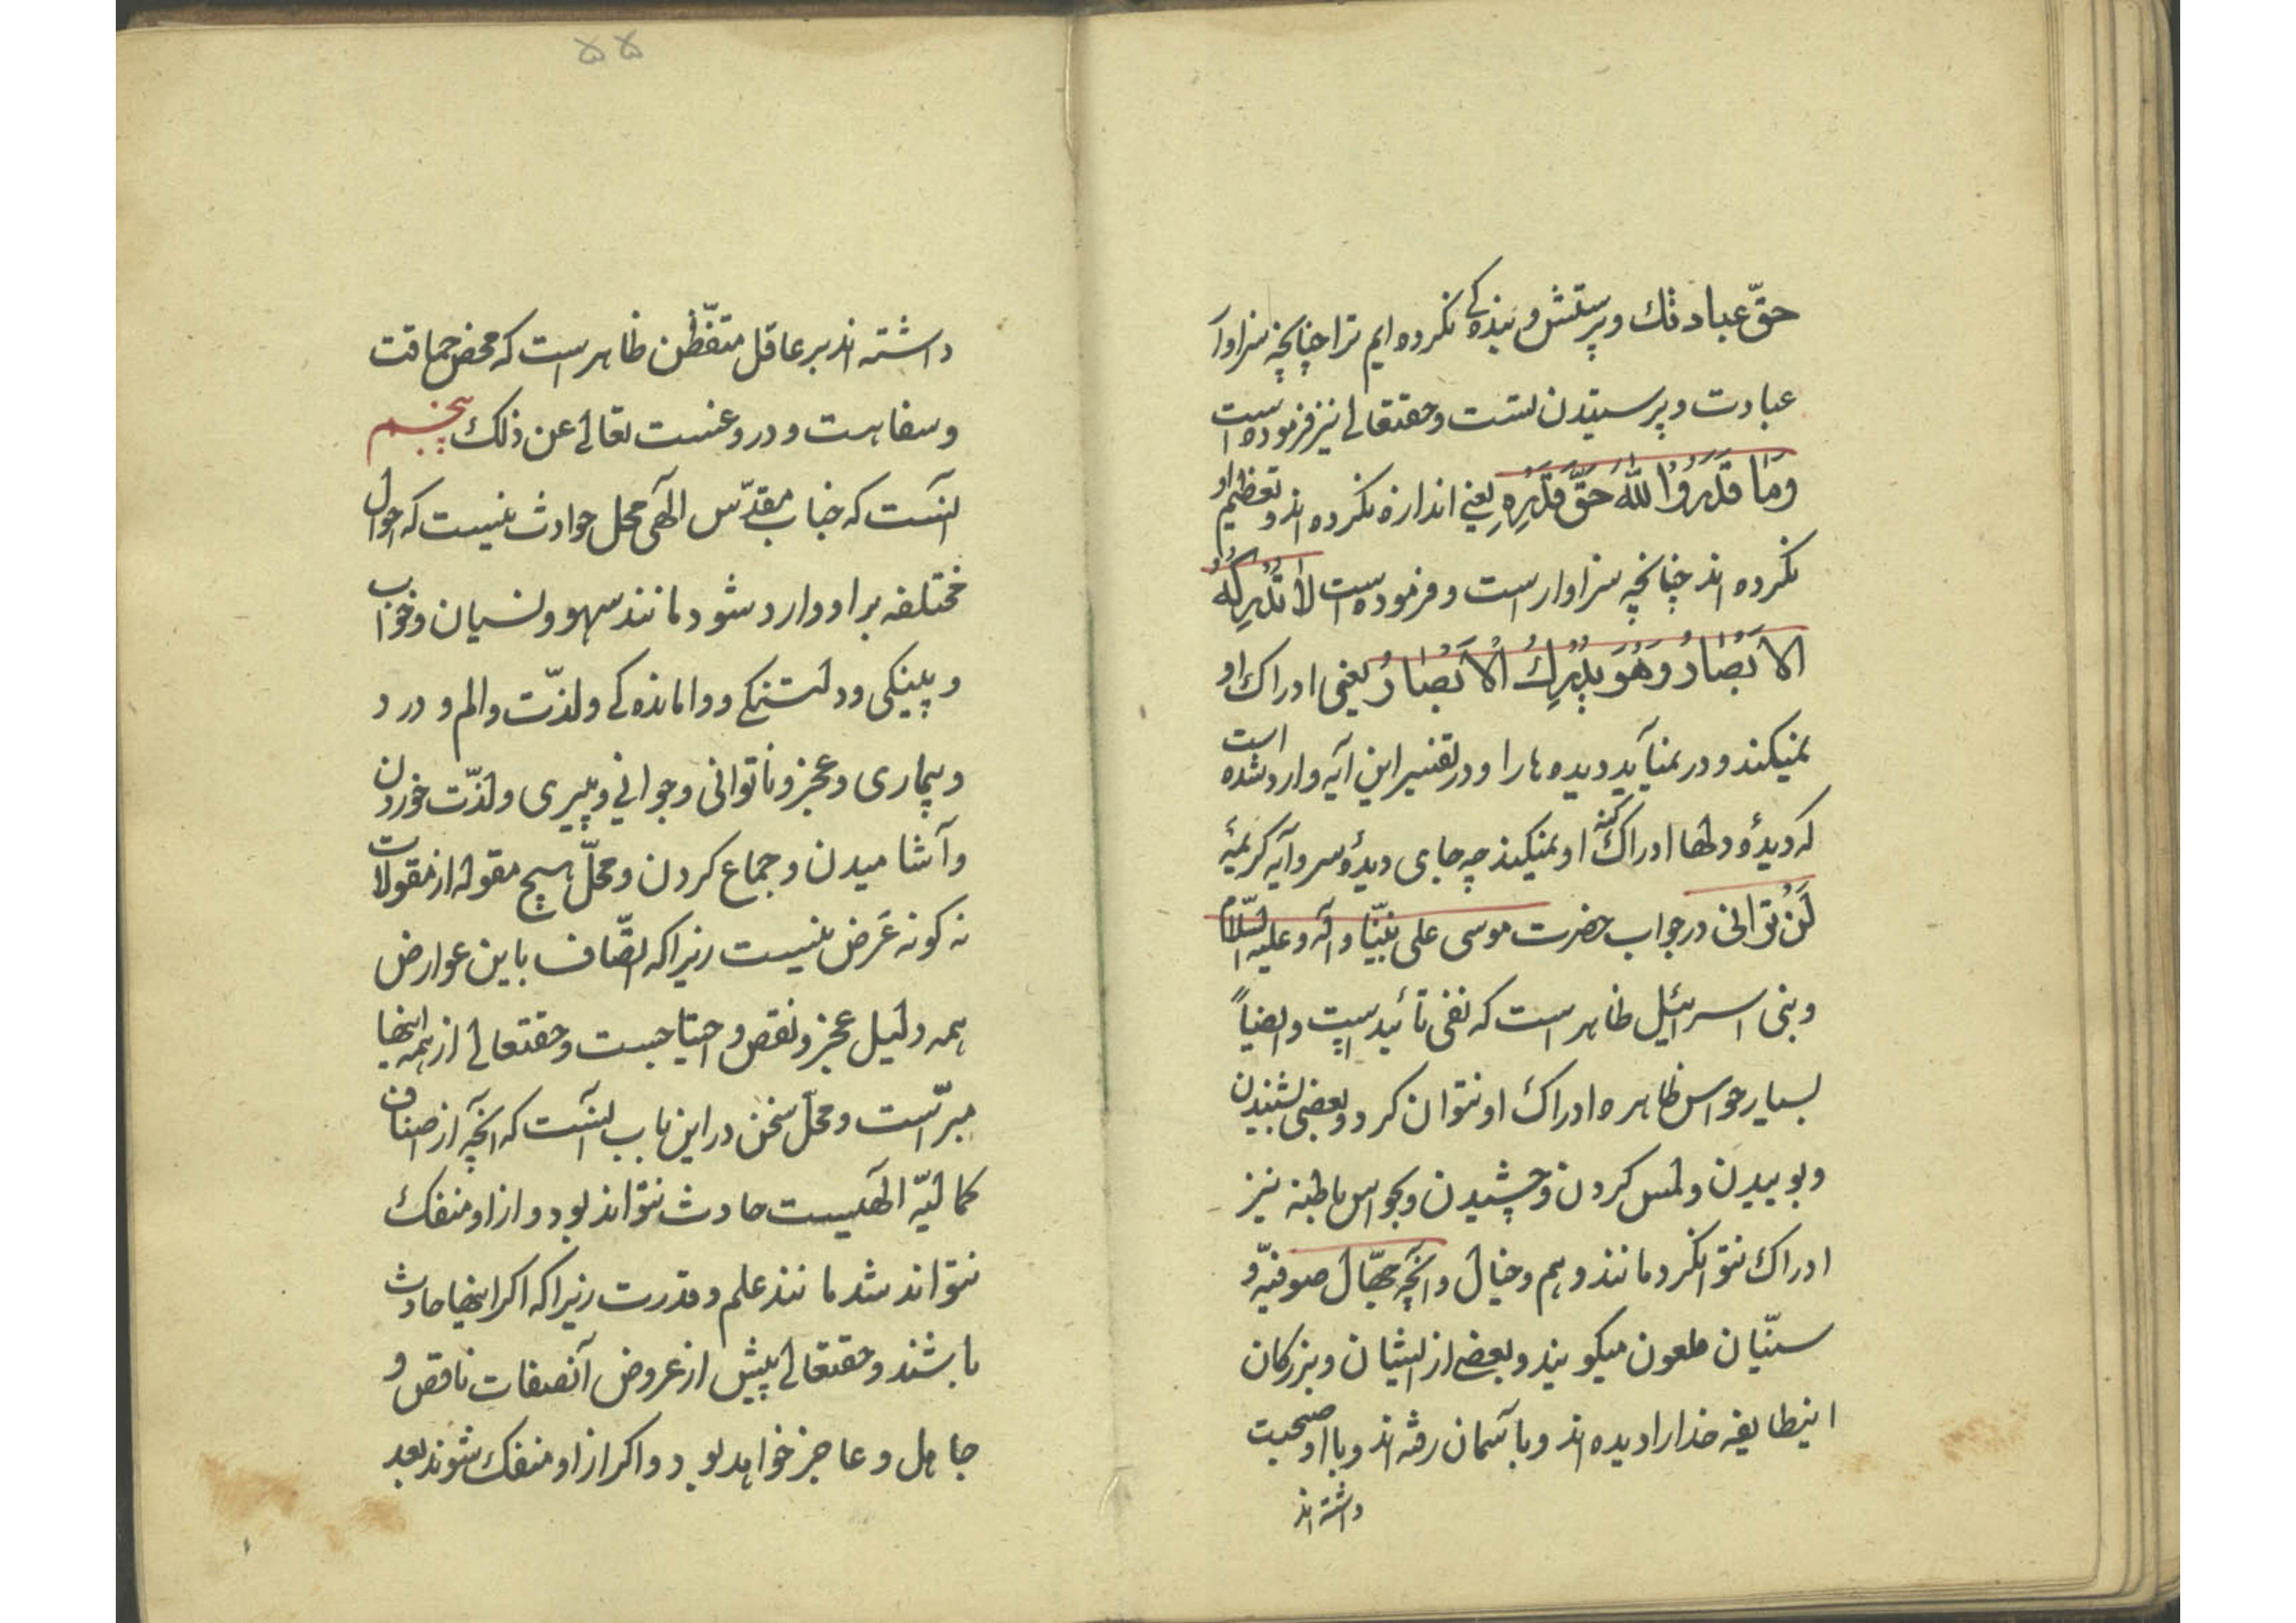 حقّ عبادتك و پرستش و بنده‌کی نکرده ایم ترا چنانچه سزاوار
عبادت و پرسیتدن تست و حقتعالی نیز فرموده است
وَمٰا قَدَرُوا اللّٰهَ حَقَّ قَدْرِهِ یعنی اندازه نکرده اند و تعظیم او
نکرده اند چنانچه سزاوار است و فرموده است لٰا تُدْرِكُهُ
الْاَبْصٰارُ وَهُوَ يُدْرِكُ الْاَبْصٰارَ یعنی ادراک او
نمیکند و در نمیآید دیده ها را و در تفسیر این آیه وارد شده است
که دیدهٔ دلها ادراک کنه او نمیکند چه جای دیدهٔ سر و آیه کریمهٔ
لَنْ تَرٰانی در جواب حضرت موسی علی نبیّنا و آله و علیه السّلام
و بنی اسرائیل ظاهر است که نفی تأئید است و ایضاً
بسیار حواس ظاهره ادراک او نتوان کرد و بعضی بشنیدن
و بوییدن و لمس کردن و چشیدن و بحواس باطنه نیز
ادراک نتوانکرد مانند وهم و خیال و آنچه جهّال صوفیّه و
سنّیان ملعون میکویند و بعضی از ایشان و بزرکان
اینطایفه خدا را دیده اند و بآسمان رفته اند و با او صحبت
داشته اند
۵۵
داشته اند بر عاقل متفطّن ظاهر است که محض حماقت
و سفاهت و دروغست تعالی عن ذلك پنجم
آنست که جناب مقدّس الٓهی محل حوادث نیست که احوال
مختلفه بر او وارد شود مانند سهو و نسیان و خواب
و پینکی و دلتنکی و وامانده‌کی و لذّت و الم و درد
و بیماری و عجز و ناتوانی و جوانی و پیری و لذّت خوردن
و آشامیدن و جماع کردن و محلّ هیچ مقوله از مقولات
نه کونه عَرَض نیست زیرا که اتّصاف باین عوارض
همه دلیل عجز و نقص و احتیاجست و حقتعالی از همه اینها
مبرّاست و محلّ سخن در این باب آنست که آنچه از صفات
کمالیّه الٓهیست حادث نتواند بود و از او منفک
نتواند شد مانند علم و قدرت زیرا که اکر اینها حادث
باشند و حقتعالی پیش از عروض آنصفات ناقص و
جاهل و عاجز خواهد بود و اکر از او منفک شوند بعد